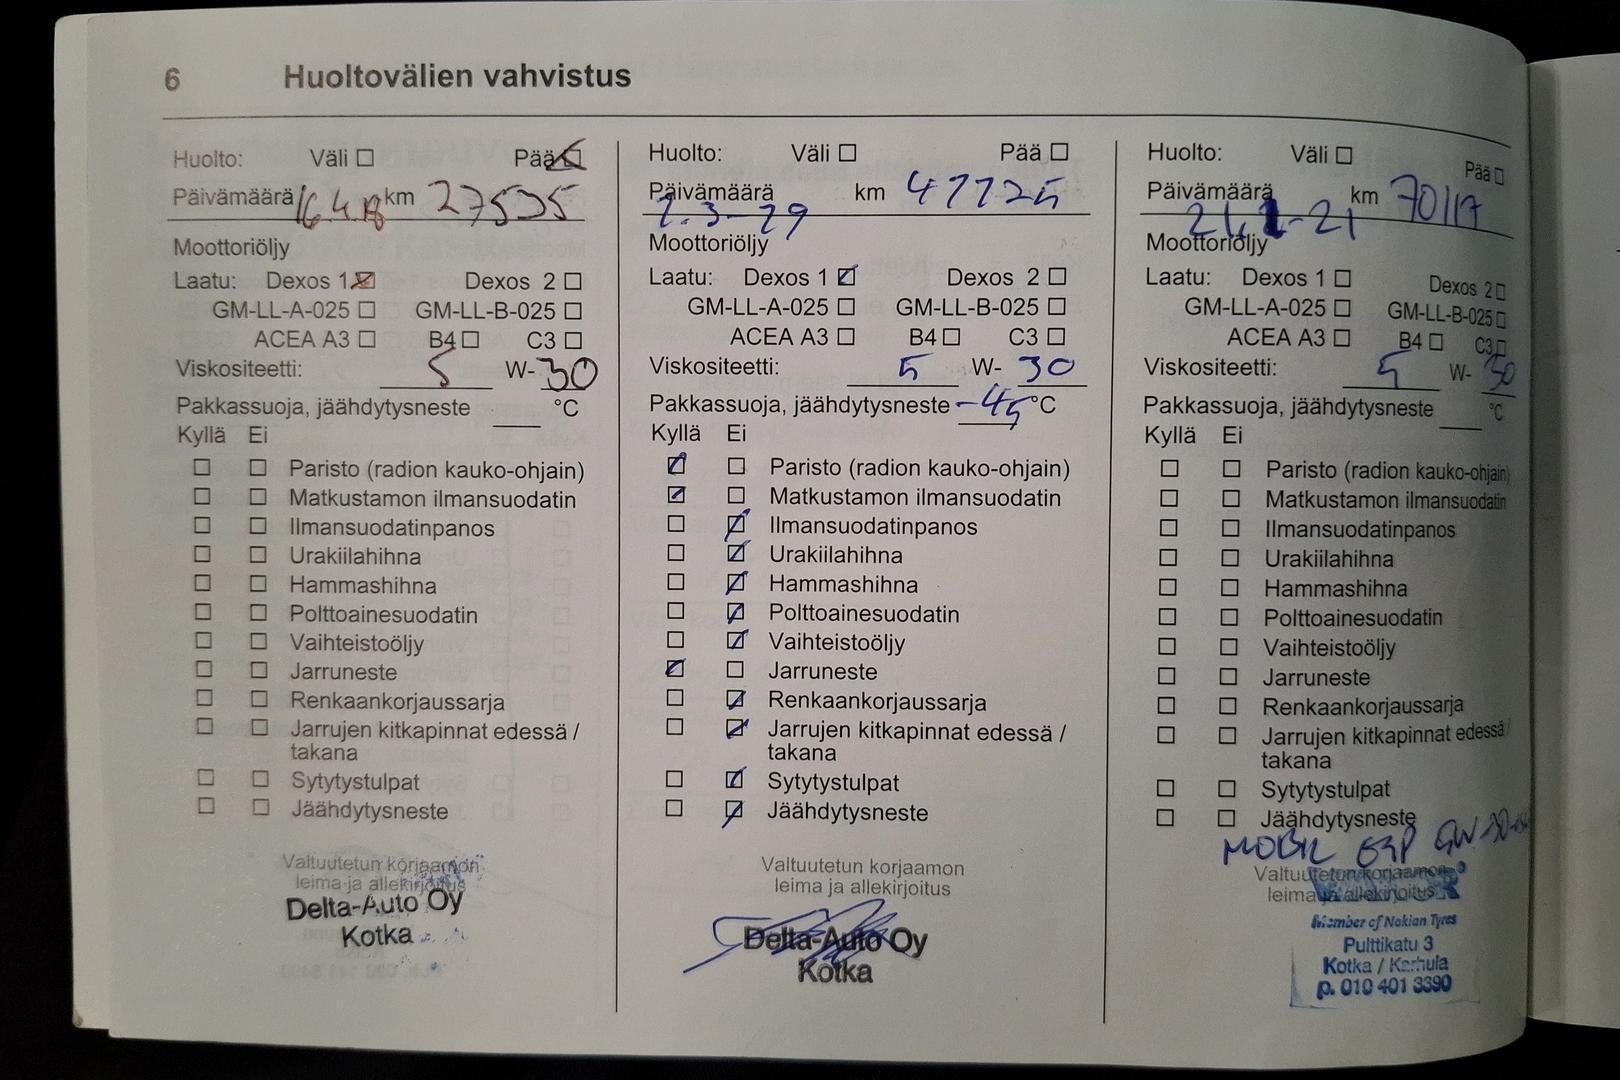 6 Huoltovälien vahvistus
Huolto: Väli Pää
Päivämäärä 16.4.18 km 27535
Moottoriöljy
Laatu: Dexos 1 Dexos 2
GM-LL-A-025 GM-LL-B-025
ACEA A3 B4 C3
Viskositeetti: 5 W-30
Pakkassuoja, jäähdytysneste °C
Kyllä Ei
Paristo (radion kauko-ohjain)
Matkustamon ilmansuodatin
Ilmansuodatinpanos
Urakiilahihna
Hammashihna
Polttoainesuodatin
Vaihteistoöljy
Jarruneste
Renkaankorjaussarja
Jarrujen kitkapinnat edessä /
takana
Sytytystulpat
Jäähdytysneste
Valtuutetun korjaamon
leima ja allekirjoitus
Delta-Auto Oy
Kotka
Huolto: Väli Pää
Päivämäärä km
Moottoriöljy
Laatu: Dexos 1 Dexos 2
GM-LL-A-025 GM-LL-B-025
ACEA A3 B4 C3
Viskositeetti: 5 W-30
Pakkassuoja, jäähdytysneste -45 °C
Kyllä Ei
Paristo (radion kauko-ohjain)
Matkustamon ilmansuodatin
Ilmansuodatinpanos
Urakiilahihna
Hammashihna
Polttoainesuodatin
Vaihteistoöljy
Jarruneste
Renkaankorjaussarja
Jarrujen kitkapinnat edessä /
takana
Sytytystulpat
Jäähdytysneste
Valtuutetun korjaamon
leima ja allekirjoitus
Delta-Auto Oy
Kotka
Huolto: Väli Pää
Päivämäärä km 70117
Moottoriöljy
Laatu: Dexos 1 Dexos 2
GM-LL-A-025 GM-LL-B-025
ACEA A3 B4 C3
Viskositeetti: 5 W-30
Pakkassuoja, jäähdytysneste °C
Kyllä Ei
Paristo (radion kauko-ohjain)
Matkustamon ilmansuodatin
Ilmansuodatinpanos
Urakiilahihna
Hammashihna
Polttoainesuodatin
Vaihteistoöljy
Jarruneste
Renkaankorjaussarja
Jarrujen kitkapinnat edessä /
takana
Sytytystulpat
Jäähdytysneste
MOBIL ESP
Valtuutetun korjaamon
leima ja allekirjoitus
Member of Nokian Tyres
Pulttikatu 3
Kotka / Karhula
p. 010 401 3390